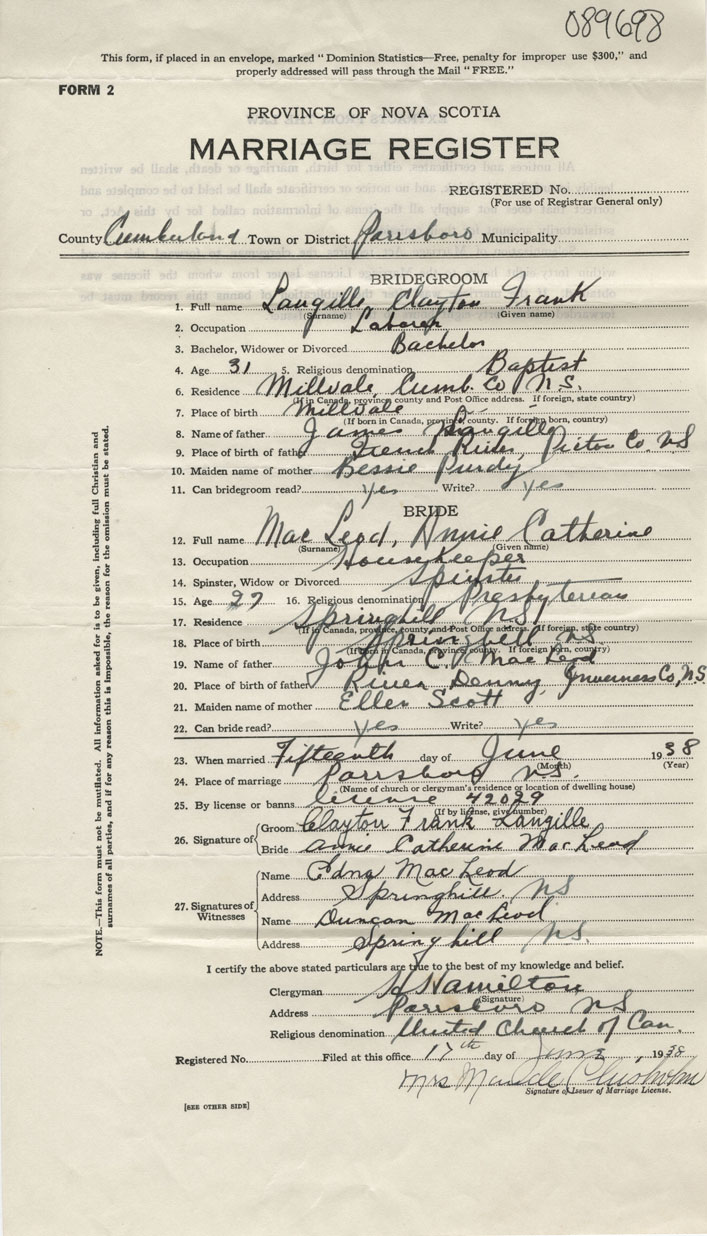 089698
This form, if placed in an envelope, marked "Dominion Statistics—Free, penalty for improper use $300," and
properly addressed will pass through the Mail "FREE."
FORM 2
PROVINCE OF NOVA SCOTIA
MARRIAGE REGISTER
REGISTERED No.
(For use of Registrar General only)
County Cumberland Town or District Parrsboro Municipality
BRIDEGROOM
1. Full name Langille, Clayton Frank
(Surname) (Given name)
2. Occupation Laborer
3. Bachelor, Widower or Divorced Bachelor
4. Age 31 5. Religious denomination Baptist
6. Residence Millvale, Cumb. Co N.S.
(If in Canada, province, county and Post Office address. If foreign, state country)
7. Place of birth Millvale
(If born in Canada, province, county. If foreign born, country)
8. Name of father James Langille
9. Place of birth of father French River, Pictou Co. NS
10. Maiden name of mother Bessie Purdy
11. Can bridegroom read? yes Write? yes
BRIDE
12. Full name Mac Leod, Annie Catherine
(Surname) (Given name)
13. Occupation Housekeeper
14. Spinster, Widow or Divorced Spinster
15. Age 27 16. Religious denomination Presbyterian
17. Residence Springhill NS
(If in Canada, province, county and Post Office address. If foreign, state country)
18. Place of birth Springhill NS
(If born in Canada, province, county. If foreign born, country)
19. Name of father John C. MacLeod
20. Place of birth of father River Denny, Inverness Co, N.S.
21. Maiden name of mother Ellen Scott
22. Can bride read? yes Write? yes
23. When married Fifteenth day of June 1938
(Month) (Year)
24. Place of marriage Parrsboro NS.
(Name of church or clergyman's residence or location of dwelling house)
25. By license or banns license 42029
(If by license, give number)
26. Signature of Groom Clayton Frank Langille
Bride Annie Catherine MacLeod
27. Signatures of Witnesses
Name Edna MacLeod
Address Springhill. NS
Name Duncan MacLeod
Address Springhill NS.
I certify the above stated particulars are true to the best of my knowledge and belief.
Clergyman Hamilton
(Signature)
Address Parrsboro NS
Religious denomination United Church of Can.
Registered No. Filed at this office 17th day of June, 1938
Mrs Maude Chisholm
Signature of Issuer of Marriage License.
[SEE OTHER SIDE]
NOTE.—This form must not be mutilated. All information asked for is to be given, including full Christian and
surnames of all parties, and if for any reason this is impossible, the reason for the omission must be stated.